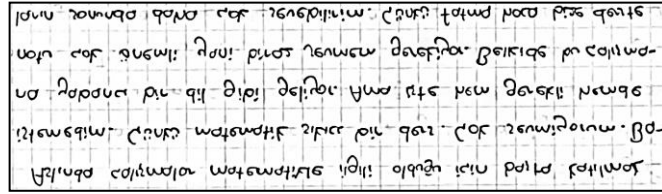 Aslında çalışmalar matematikle ilgili olduğu için başta katılmak
istemedim. Çünkü matematik sıkıcı bir ders. Çok sevmiyorum. Ba-
na yabancı bir dil gibi geliyor. Ama işte hem gerekli hemde
notu çok önemli yani biraz sevmem gerekiyor. Belkide bu çalışma-
ların sonunda daha çok sevebilirim. Çünkü Fatma hoca bize derste